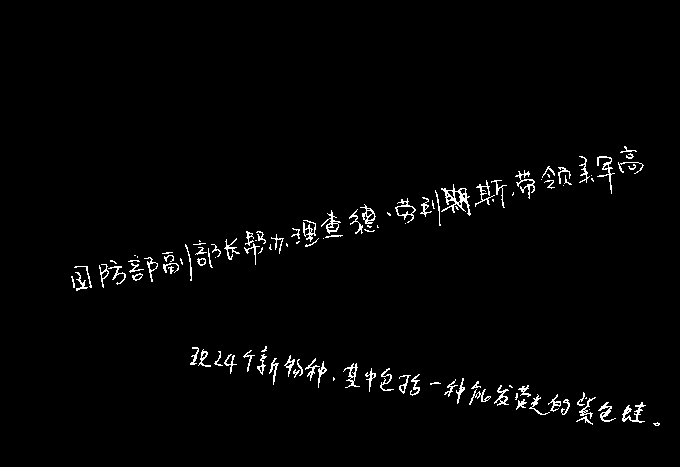 国防部副部长帮办理查德·劳利期斯,带领美军高
现24个新物种,其中包括一种能发荧光的紫色蛙。